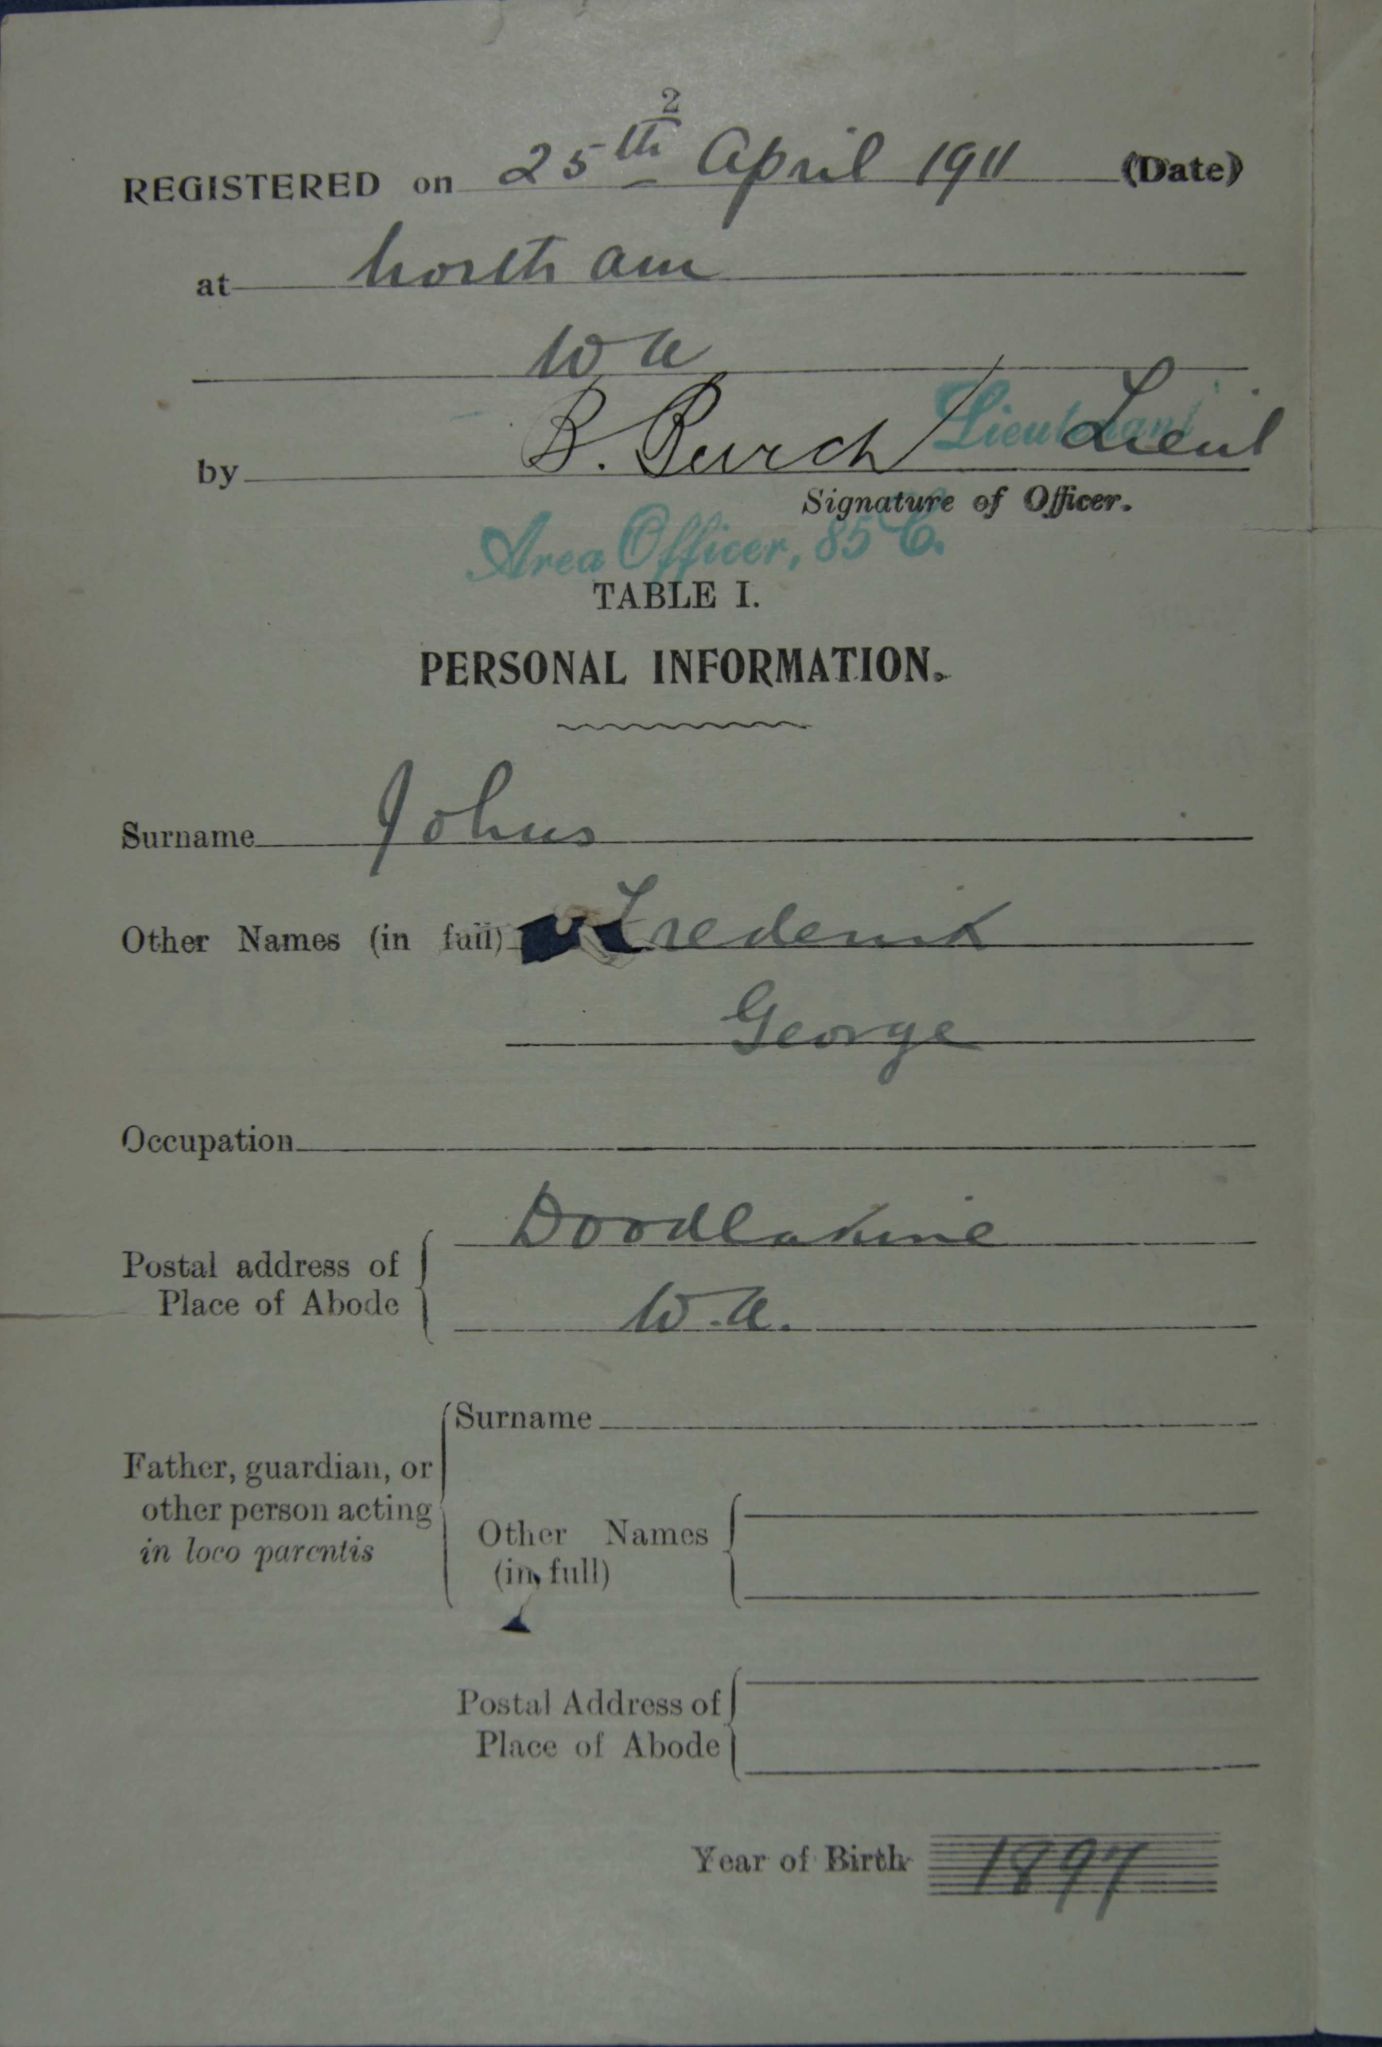 2
REGISTERED on 25th April 1911 (Date)
at Northam
W A
by B. Burch Lieutenant Lieut
Signature of Officer.
Area Officer, 85 C.
TABLE I.
PERSONAL INFORMATION.
Surname Johns
Other Names (in full) Frederick
George
Occupation
Doodlakine
Postal address of
Place of Abode
W.A.
Surname
Father, guardian, or
other person acting
in loco parentis
Other Names
(in full)
Postal Address of
Place of Abode
Year of Birth 1897